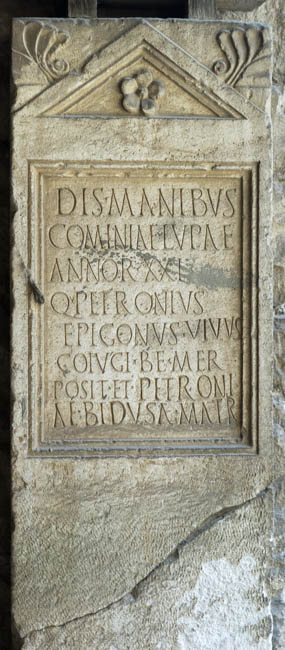 DIS·MANIBVS
COMINIAE·LVPAE
ANNOR·XXI
Q·PETRONIVS
EPIGONVS·VIVVS
COIVGI·BE·MER
POSIT·ET·PETRONI
AE·BIDVSA·MATR